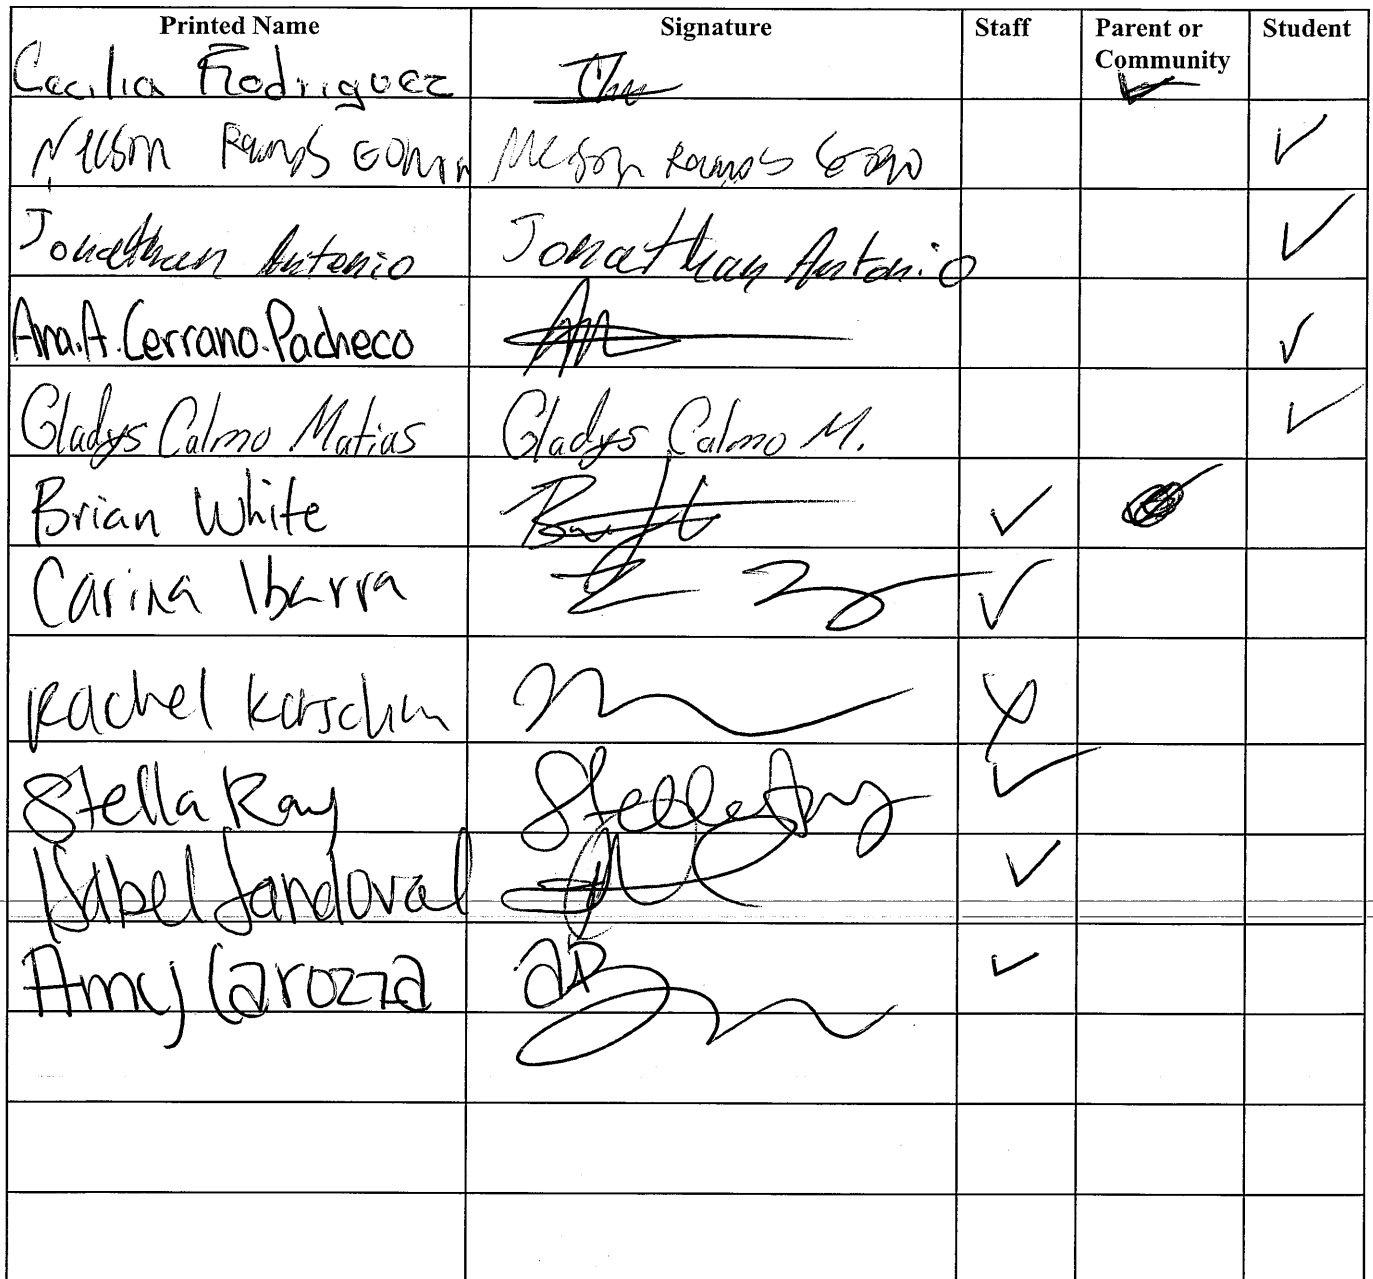 Printed Name Signature Staff Parent or Community Student
Cecilia Rodriguez ✓
Nelson Ramos Nelson Ramos ✓
Jonathan Antonio Jonathan Antonio ✓
Ana.A.Cerrano.Pacheco ✓
Gladys Calmo Matias Gladys Calmo M. ✓
Brian White ✓
Carina Ibarra ✓
Rachel
Stella Ray Stella Ray ✓
Isabel Sandoval ✓
Amy Carozza ✓